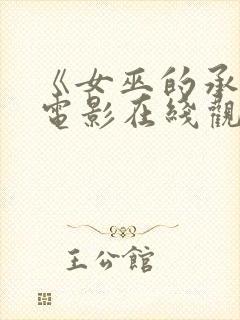 《女巫的承
電影在綫觀
王公館